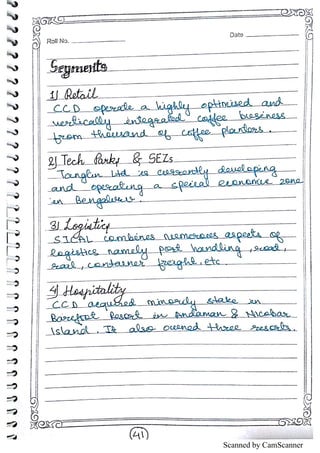 Date
Roll No.
Segments
1) Retail
CCD operate a highly optimised and
vertically integrated coffee business
from thousand of coffee planters.
2) Tech Parks & SEZs
Tanglin Ltd is currently developing
and operating a special economic zone
in Bengaluru.
3) Logistics
SICAL combines numerous aspects of
logistics namely port handling, road,
rail, container freight, etc.
4) Hospitality
CCD acquired minority stake in
Barefoot Resort in Andaman & Nicobar
Island. It also owned three resorts.
(41)
Scanned by CamScanner